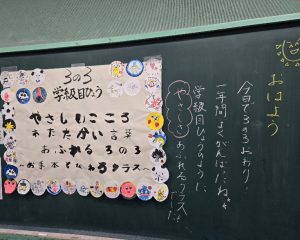 3の3
学級目ひょう
やさしいこころ
あたたかい言葉
あふれる 3の3
お手本となれるクラスへ
おはよう
今日で3の3おわり!
一年間よくがんばったね
学級目ひょうのように、
やさしさあふれるクラス